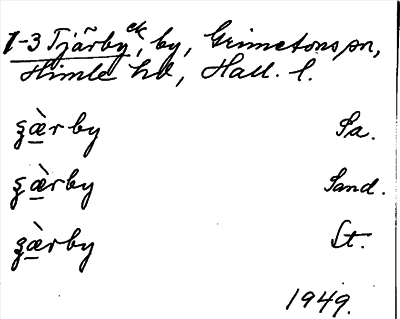 1-3 Tjärby ck, by, Grimetons sn,
Himle hd, Hall. l.
ʂæ̀rby Sa.
ʂæ̀rby Sand.
ʂæ̀rby St.
1949.